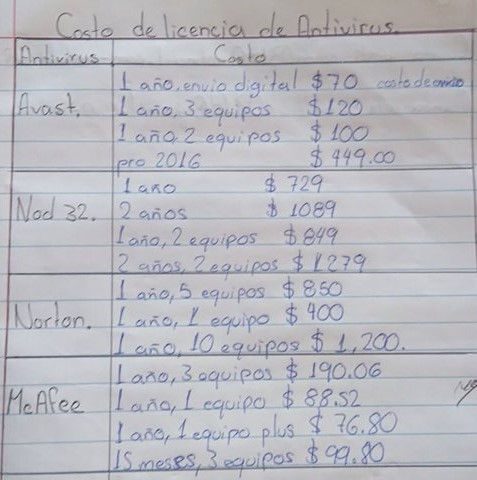 Costo de licencia de Antivirus.
Antivirus Costo
1 año, envio digital $70 costo de envio
Avast. 1 año, 3 equipos $120
1 año, 2 equipos $100
pro 2016 $449.00
1 año $729
Nod 32. 2 años $1089
1 año, 2 equipos $849
2 años, 2 equipos $1279
1 año, 5 equipos $850
Norton. 1 año, 1 equipo $400
1 año, 10 equipos $1,200.
1 año, 3 equipos $190.06
McAfee 1 año, 1 equipo $88.52
1 año, 1 equipo plus $76.80
15 meses, 3 equipos $99.80